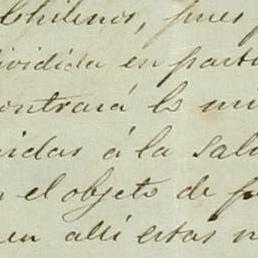 Chilenos, pues
ividida en parti
ontrará lo mi
idas á la salu
n el objeto de fu
en alli estas n